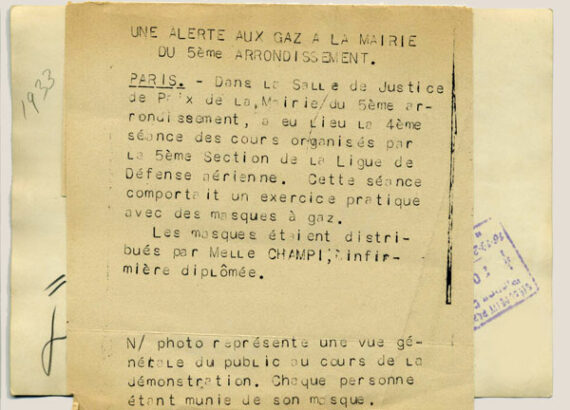 UNE ALERTE AUX GAZ A LA MAIRIE
DU 5ème ARRONDISSEMENT.
PARIS. - Dans La Salle de Justice
de Paix de La Mairie du 5ème ar-
rondissement, a eu Lieu La 4ème
séance des cours organisés par
La 5ème Section de La Ligue de
Défense aérienne. Cette séance
comportait un exercice pratique
avec des masques à gaz.
Les masques étaient distri-
bués par Melle CHAMPI, infir-
mière diplômée.
N/ photo représente une vue gé-
nérale du public au cours de La
démonstration. Chaque personne
étant munie de son masque.
1933